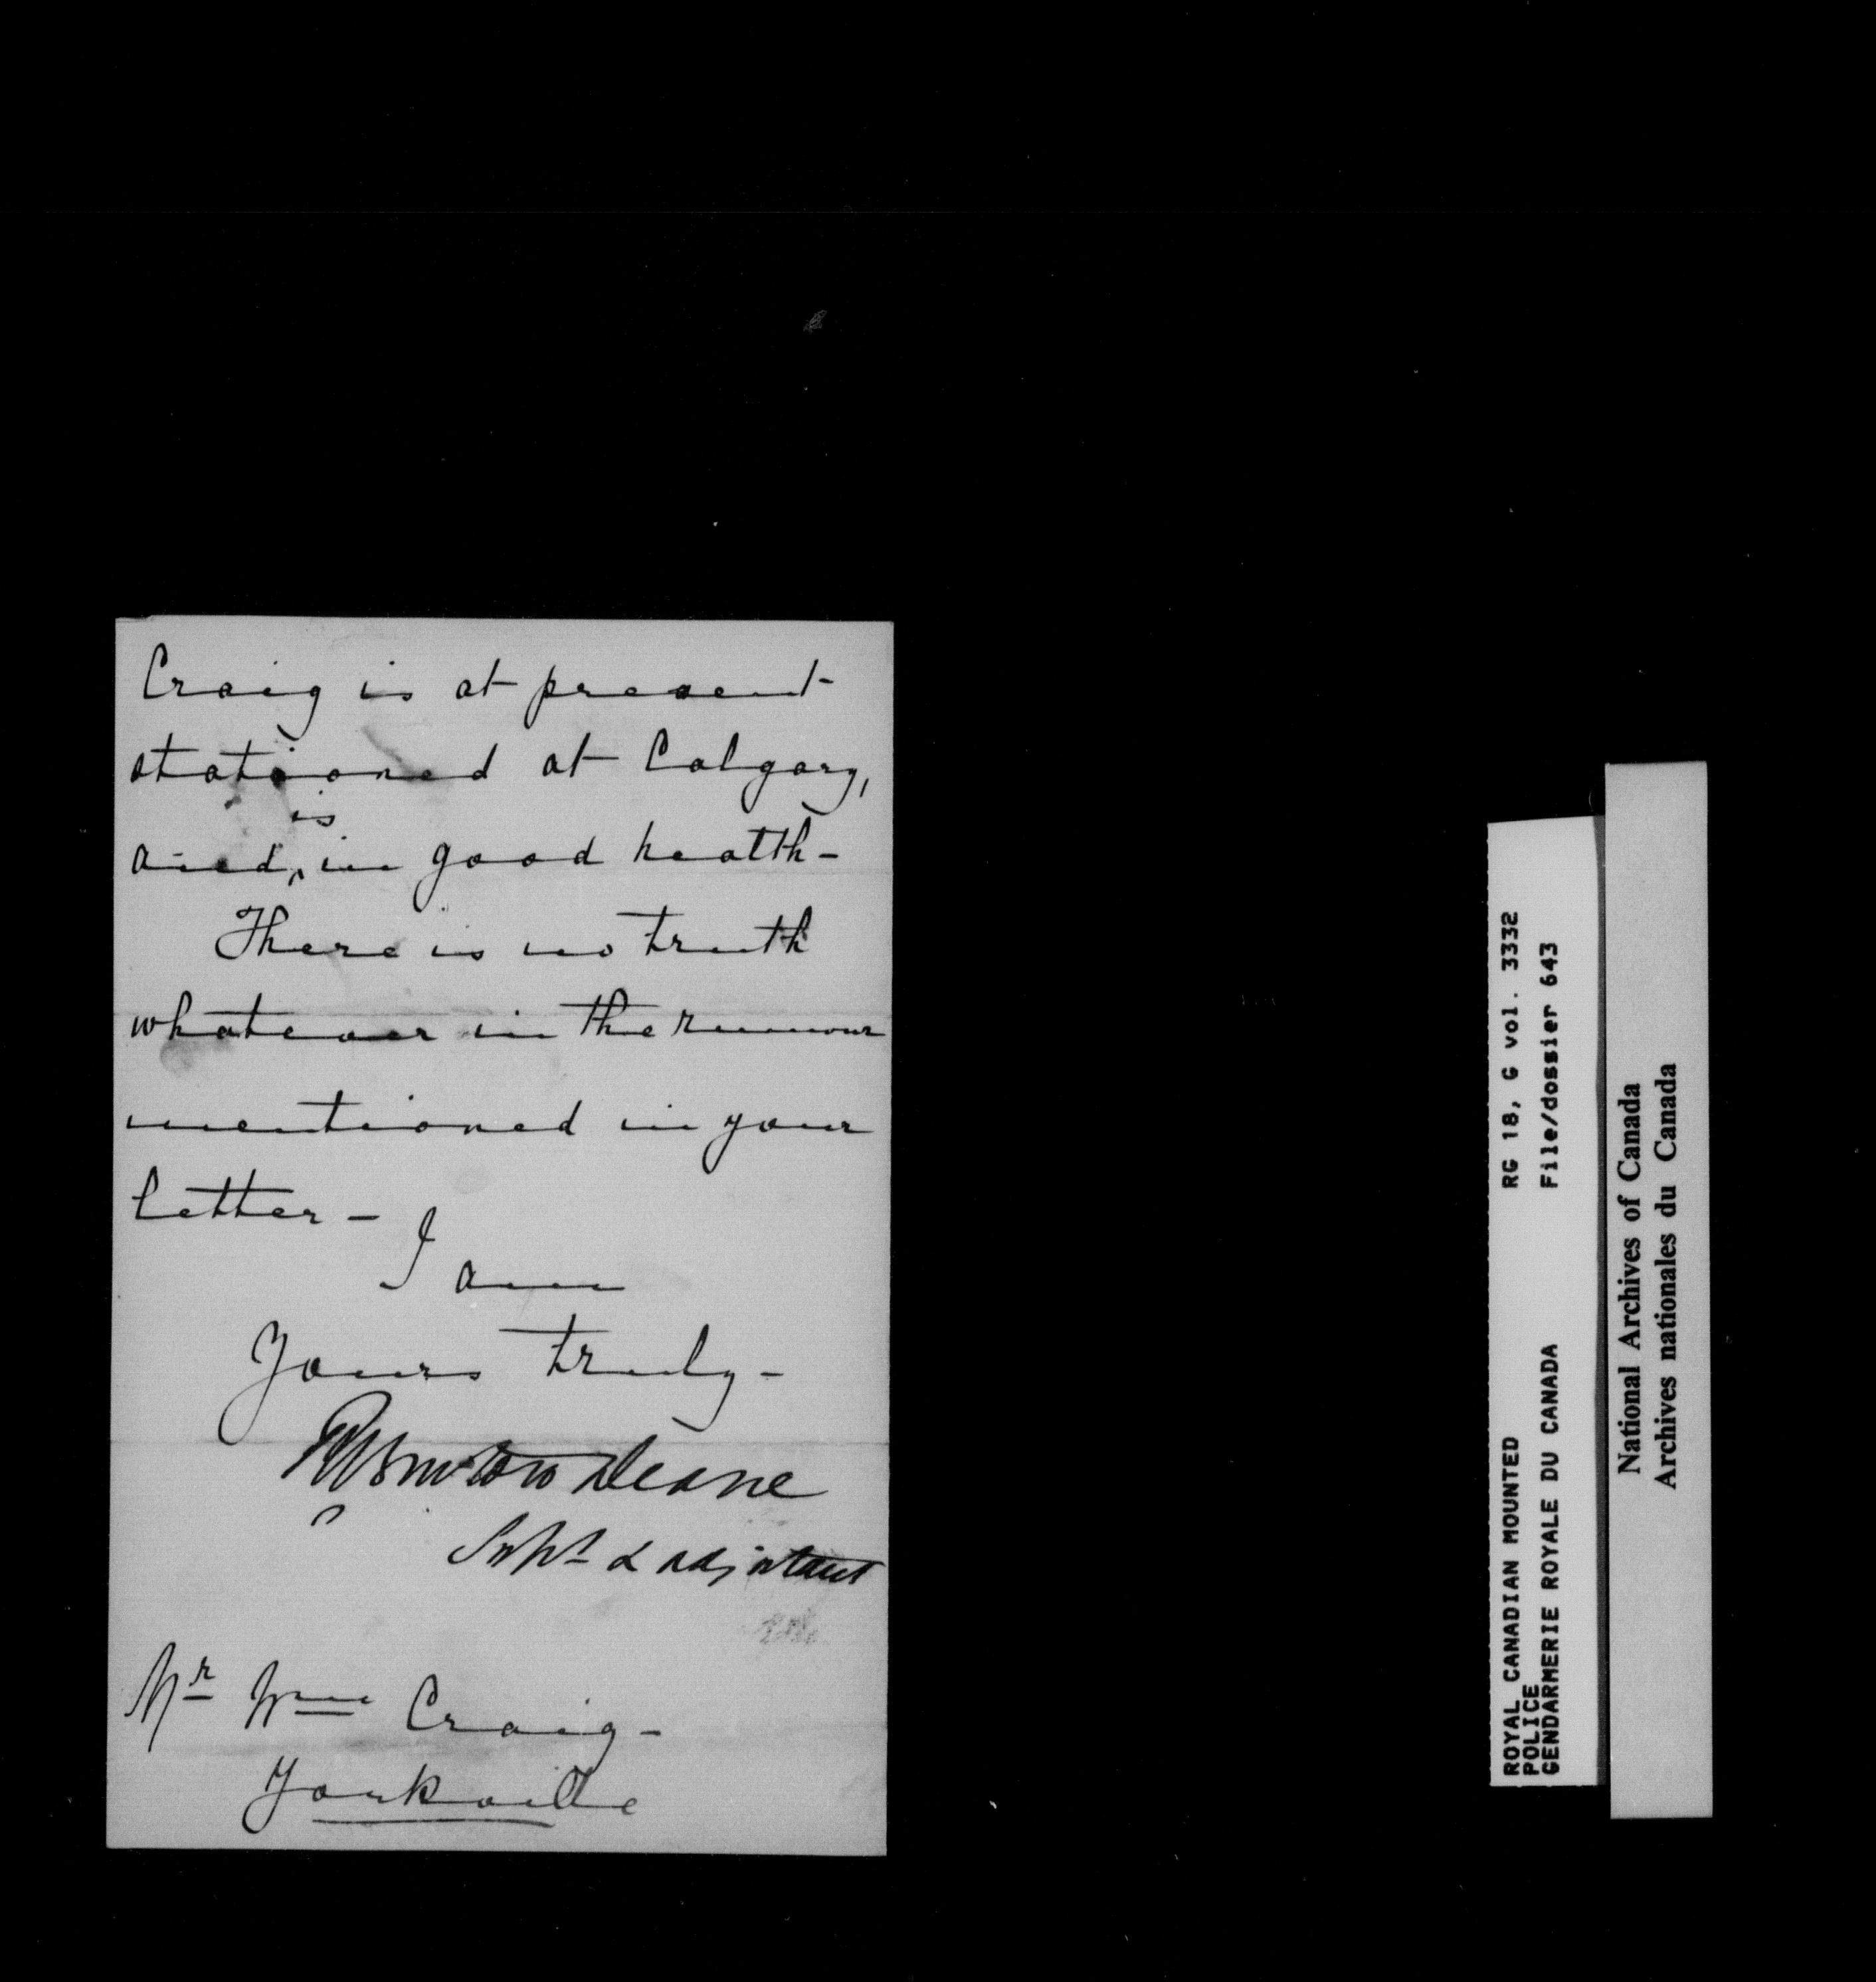 Craig is at present
stationed at Calgary,
is
and ^ in good health -
There is no truth
whatever in the rumour
mentioned in your
letter -
I am
Yours truly -
R Burton Deane
Supt & Adjutant
Mr Wm Craig -
Yorkville
ROYAL CANADIAN MOUNTED
POLICE
GENDARMERIE ROYALE DU CANADA
RG 18, G vol. 3332
File/dossier 643
National Archives of Canada
Archives nationales du Canada